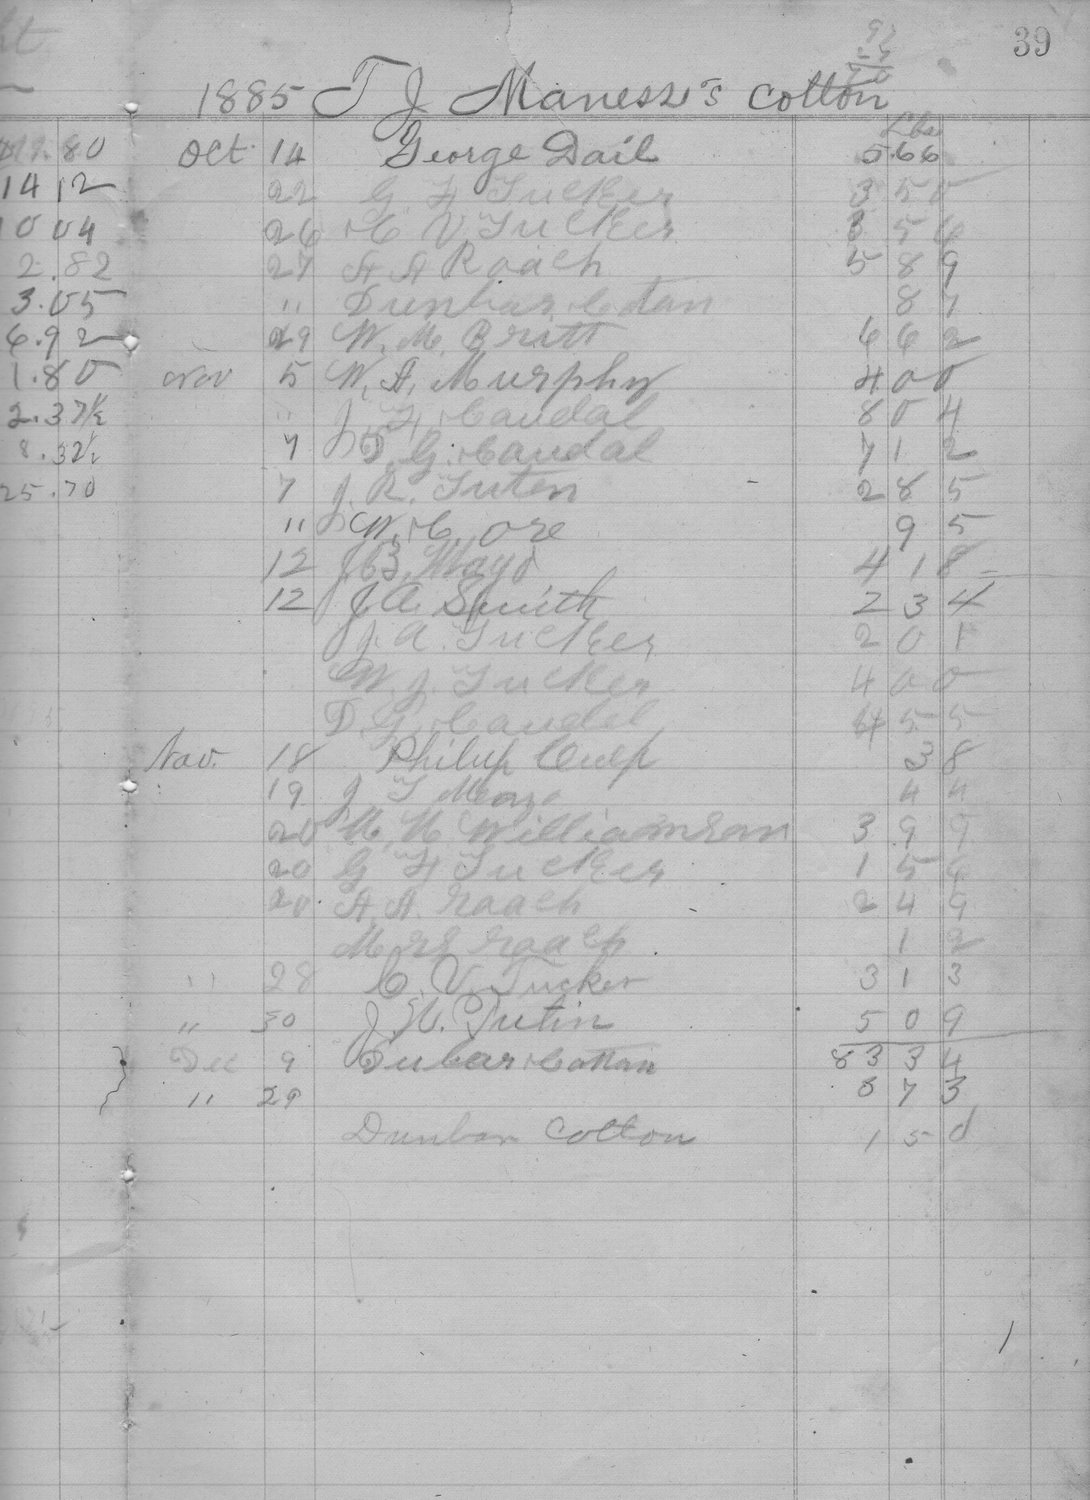 39
1885 T J Maness's cotton
Lbs
Oct 14 George Dail 566
22 G F Tucker 350
26 C V Tucker 354
27 A A Roach 589
" Dunbar Cotan 87
29 W. M. Britt 662
Nov 5 W. A. Murphy 400
" J. F. Caudal 804
7 D. G. Caudal 712
7 J. R. Tuten 285
11 W. C. ore 95
12 J B. Mayo 418
12 J. A. Smith 234
J. A. Tucker 201
W. J. Tucker 400
D. G. Caudel 455
Nov. 18 Philip Culp 38
19 J T 44
20 Williamson 399
20 G F Tucker 156
20 A. A. Roach 249
Roach 12
" 28 C. V. Tucker 313
" 30 J. Tutin 509
Dec 9 Dubar Cottan 8334
" 29 873
Dunbar Cotton 150
80
14 12
10 04
2.82
3.05
6.92
1.80
2.37½
8.32½
25.70